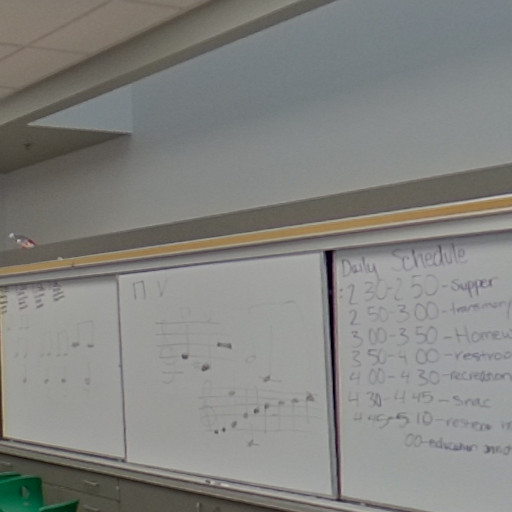 Daily Schedule
2 30-2 50-Supper
2 50-3 00-
3 00-3 50-Homew
3 50-4 00-restroo
4 00-4 30-recreation
4 30-4 45-Snac
4 45-5 10-restroo
00-education
П V